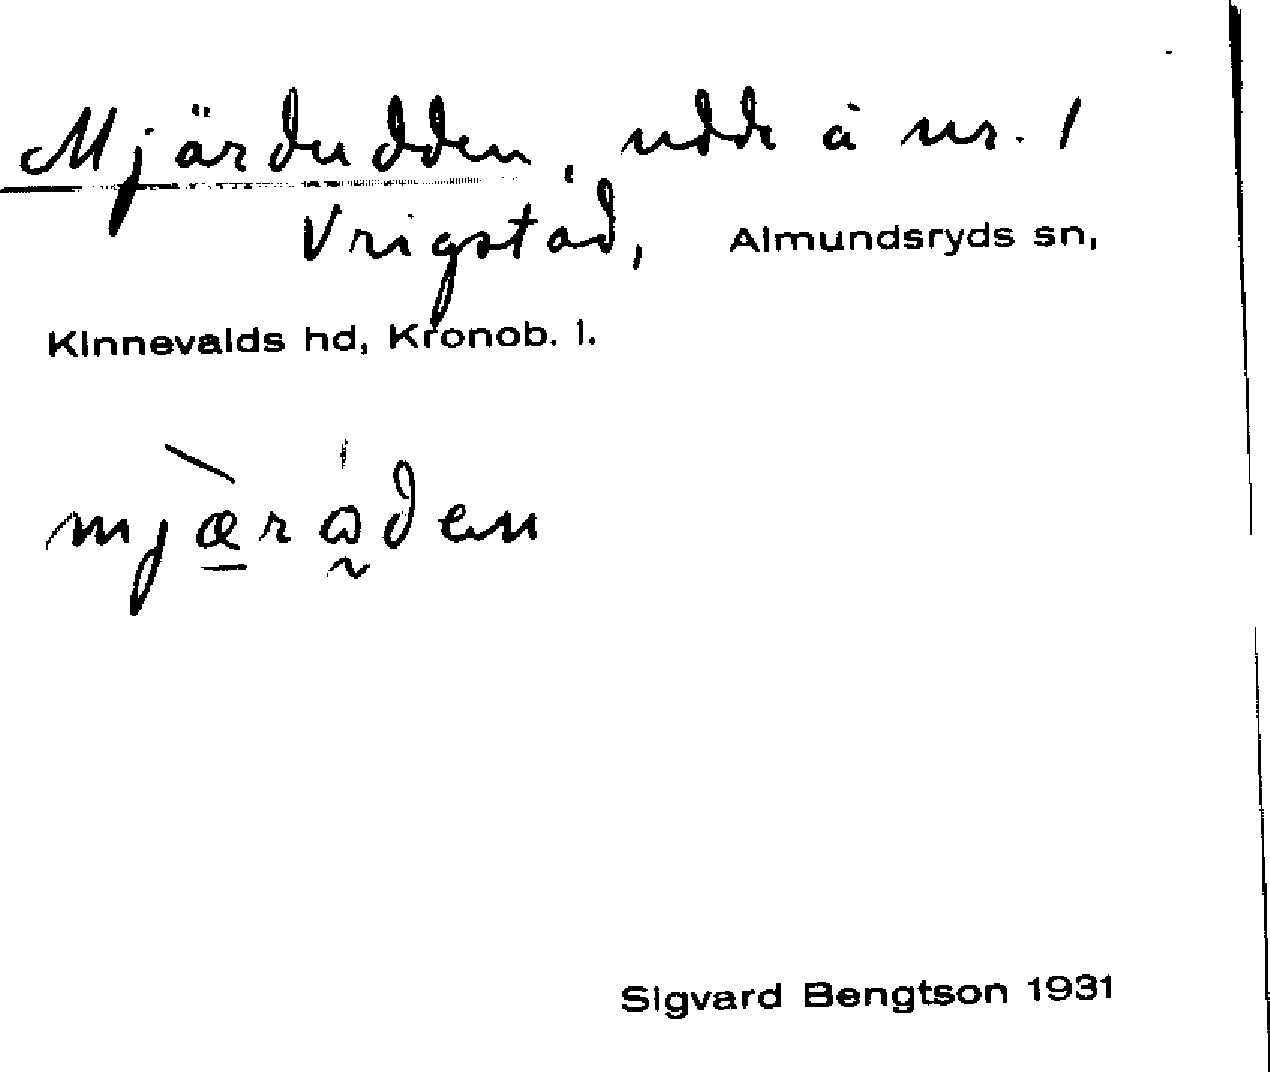 Mjärdudden, udde å nr. 1
Vrigstad, Almundsryds sn,
Kinnevalds hd, Kronob. l.
mjæ̀rɷ̰́den
Sigvard Bengtson 1931